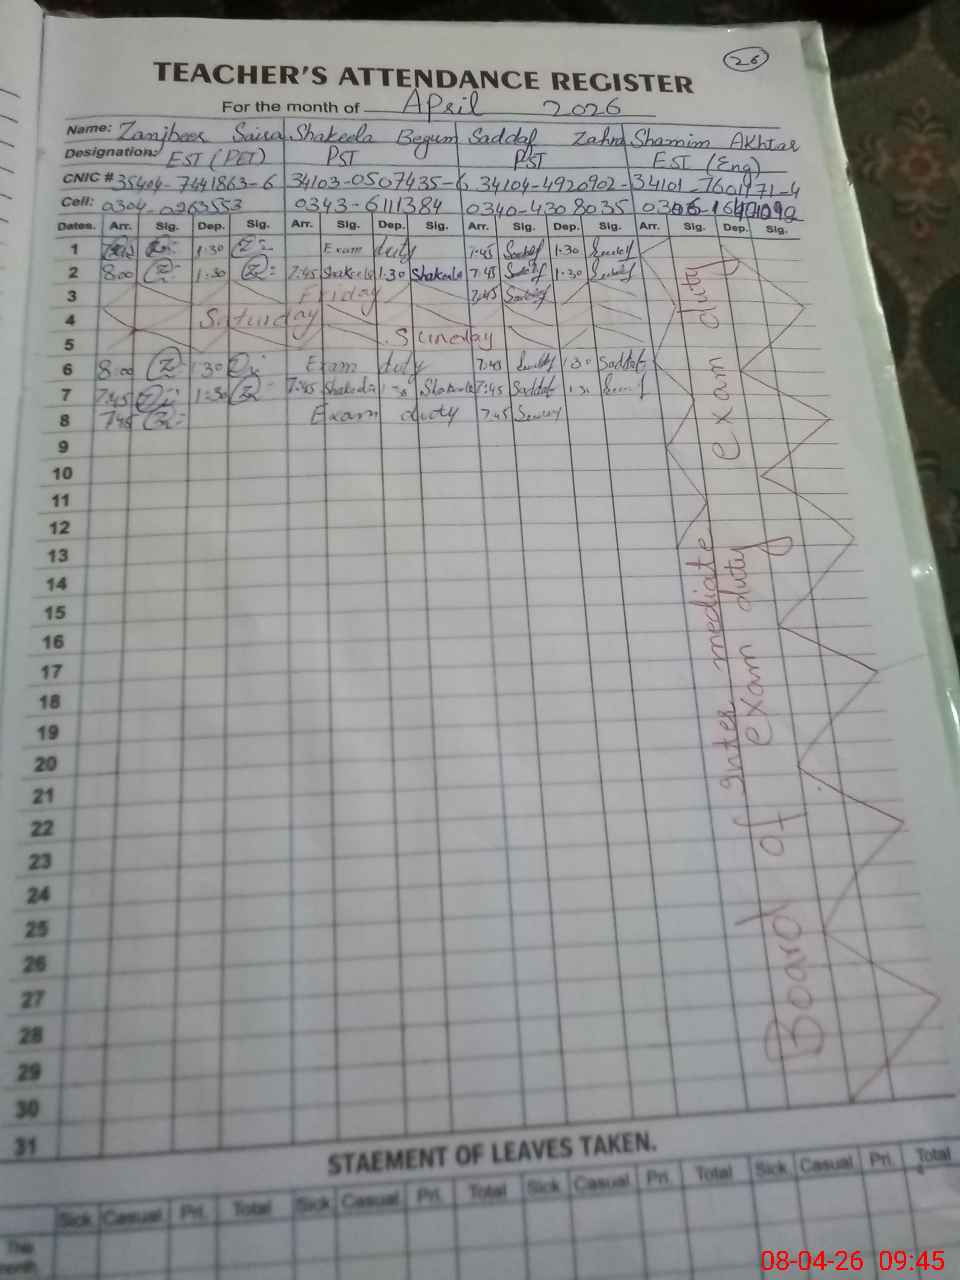 26
TEACHER'S ATTENDANCE REGISTER
For the month of April 2026
Name: Saira Shakeela Begum Saddaf Zahra Shamim Akhtar
Designation: EST (PET) PST PST EST (Eng)
CNIC # 35404-7441863-6 34103-0507435-6 34104-4920902- 34101-7601171-4
Cell: 0304-0263553 0343-6111384 0340-4308035
Dates. Arr. Sig. Dep. Sig. Arr. Sig. Dep. Sig. Arr. Sig. Dep. Sig. Arr. Sig. Dep. Sig.
1 1:30 Exam duty 7:45 Saddaf 1:30
2 8:00 1:30 7:45 Shakeela 1:30 Shakeela 7:45 Saddaf 1:30
3 Friday 7:45
4 Saturday
5 Sunday
6 8:00 1:30 Exam duty 7:45 1:30 Saddaf
7 7:45 1:30 7:45 Shakeela 1:30 Shakeela 7:45 Saddaf 1:30
8 7:45 Exam duty 7:45
9
10
11
12
13
14
15
16
17
18
19
20
21
22
23
24
25
26
27
28
29
30
31
Board of inter mediate exam duty
exam duty
STAEMENT OF LEAVES TAKEN.
Sick Casual Pri. Total Sick Casual Pri. Total Sick Casual Pri. Total Sick Casual Pri. Total
This
month
08-04-26 09:45